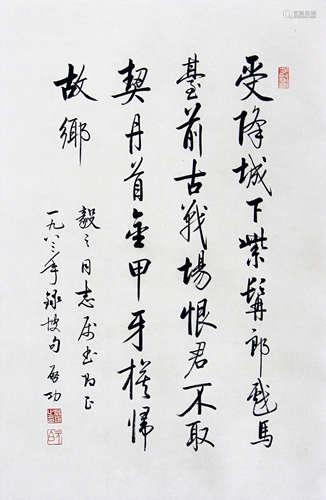 受降城下紫髯郎戲馬
臺前古戰場恨君不取
契丹首金甲牙旗歸
故鄉
毅之同志属书正
一九八三年錄坡句启功